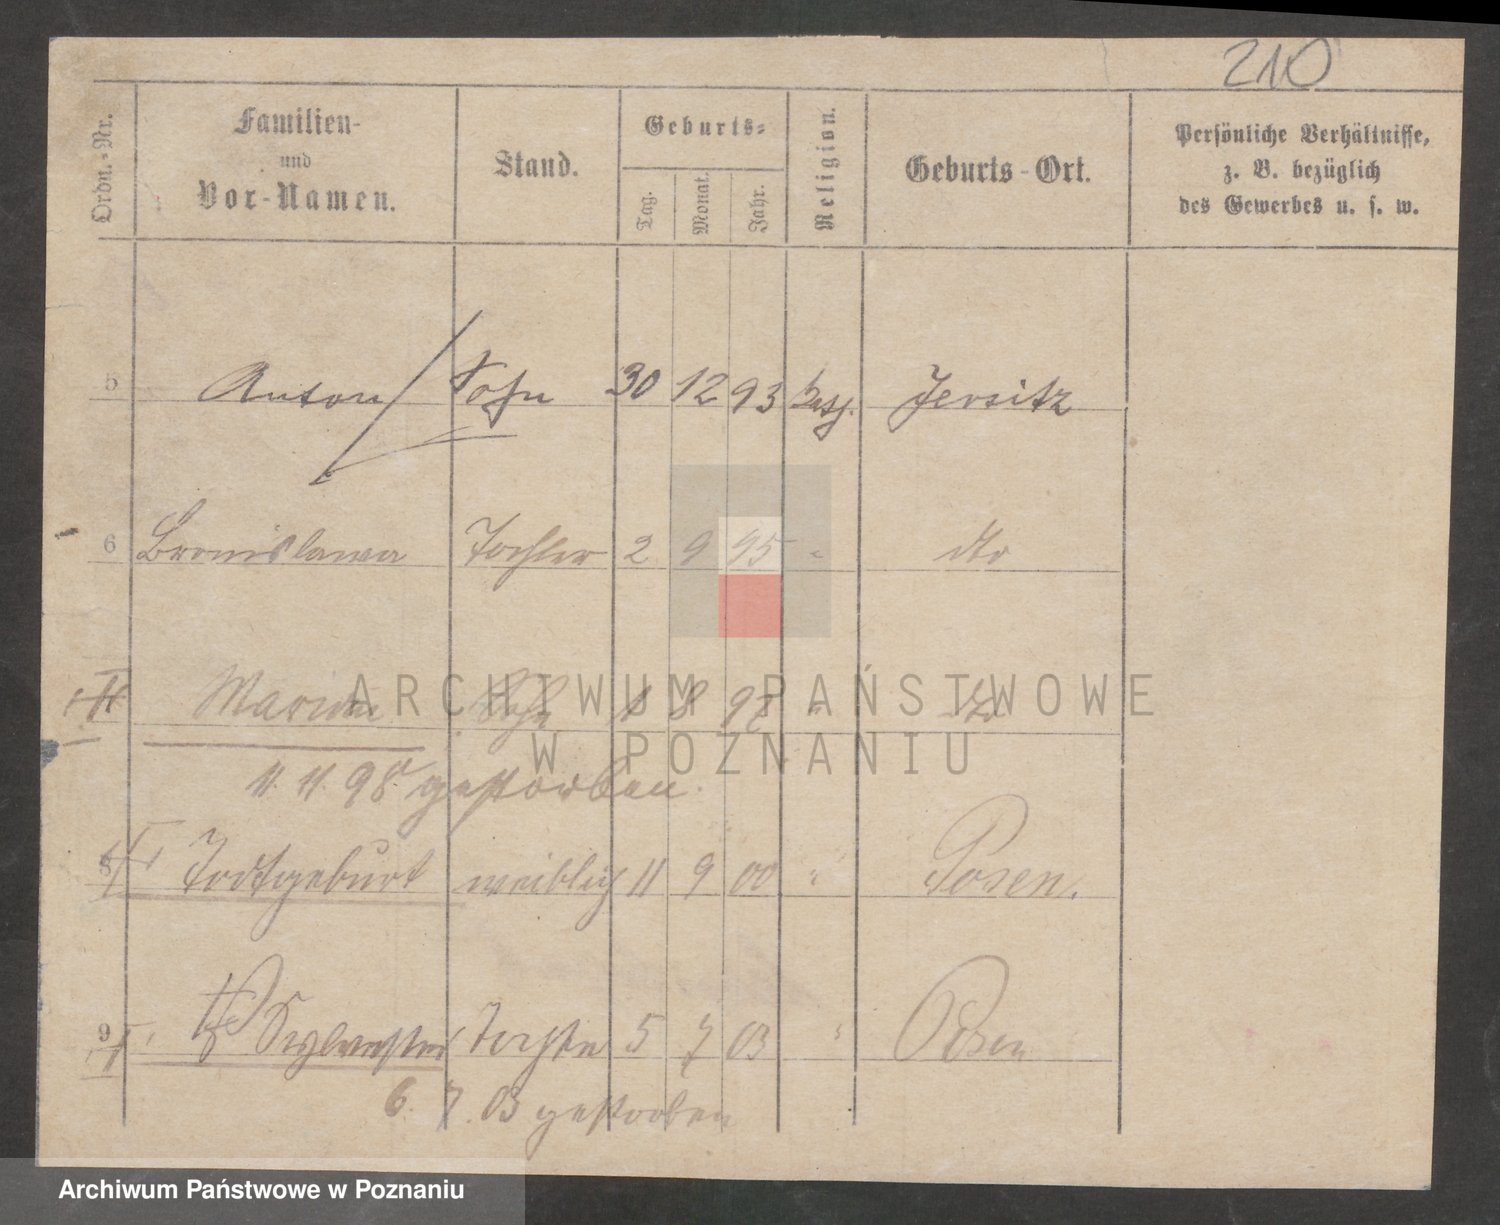 210
Ordn.-Nr. Familien- und Vor-Namen. Stand. Geburts- Tag. Monat. Jahr. Religion. Geburts-Ort. Persönliche Verhältnisse, z. B. bezüglich des Gewerbes u. s. w.
5 Anton Sohn 30 12 93 kath. Jersitz
6 Bronislawa Tochter 2 9 95 " dto
Marian Sohn 1 8 98 " dto
11. 11. 98 gestorben.
8 Todtgeburt weiblich 11 9 00 " Posen.
9 Sylvester Tochter 5 7 03 " Posen
6. 7. 03 gestorben
ARCHIWUM PAŃSTWOWE
W POZNANIU
Archiwum Państwowe w Poznaniu